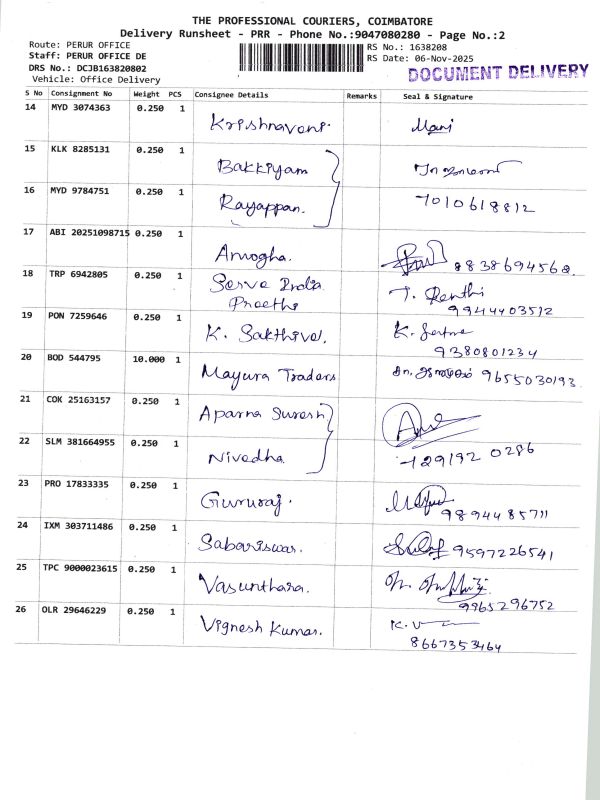 THE PROFESSIONAL COURIERS, COIMBATORE
Delivery Runsheet - PRR - Phone No.:9047080280 - Page No.:2
Route: PERUR OFFICE
RS No.: 1638208
Staff: PERUR OFFICE DE
RS Date: 06-Nov-2025
DRS No.: DCJB163820802
DOCUMENT DELIVERY
Vehicle: Office Delivery
S No Consignment No Weight PCS Consignee Details Remarks Seal & Signature
14 MYD 3074363 0.250 1
Krishnaveni. Mani
15 KLK 8285131 0.250 1
Bakkiyam
16 MYD 9784751 0.250 1
Rayappan. 7010618812
17 ABI 20251098715 0.250 1
Amogha. 8838694562
18 TRP 6942805 0.250 1
Serve India
Preethi
9944403512
19 PON 7259646 0.250 1
K. Sakthivel.
9380801234
20 BOD 544795 10.000 1
Mayura Traders 9655030193
21 COK 25163157 0.250 1
Aparna Suresh
22 SLM 381664955 0.250 1
Nivedha. 729192 0286
23 PRO 17833335 0.250 1
Gururaj. 9894485711
24 IXM 303711486 0.250 1
Sabariswar. 9597226541
25 TPC 9000023615 0.250 1
Vasunthara.
9965296752
26 OLR 29646229 0.250 1
Vignesh Kumar.
8667353464